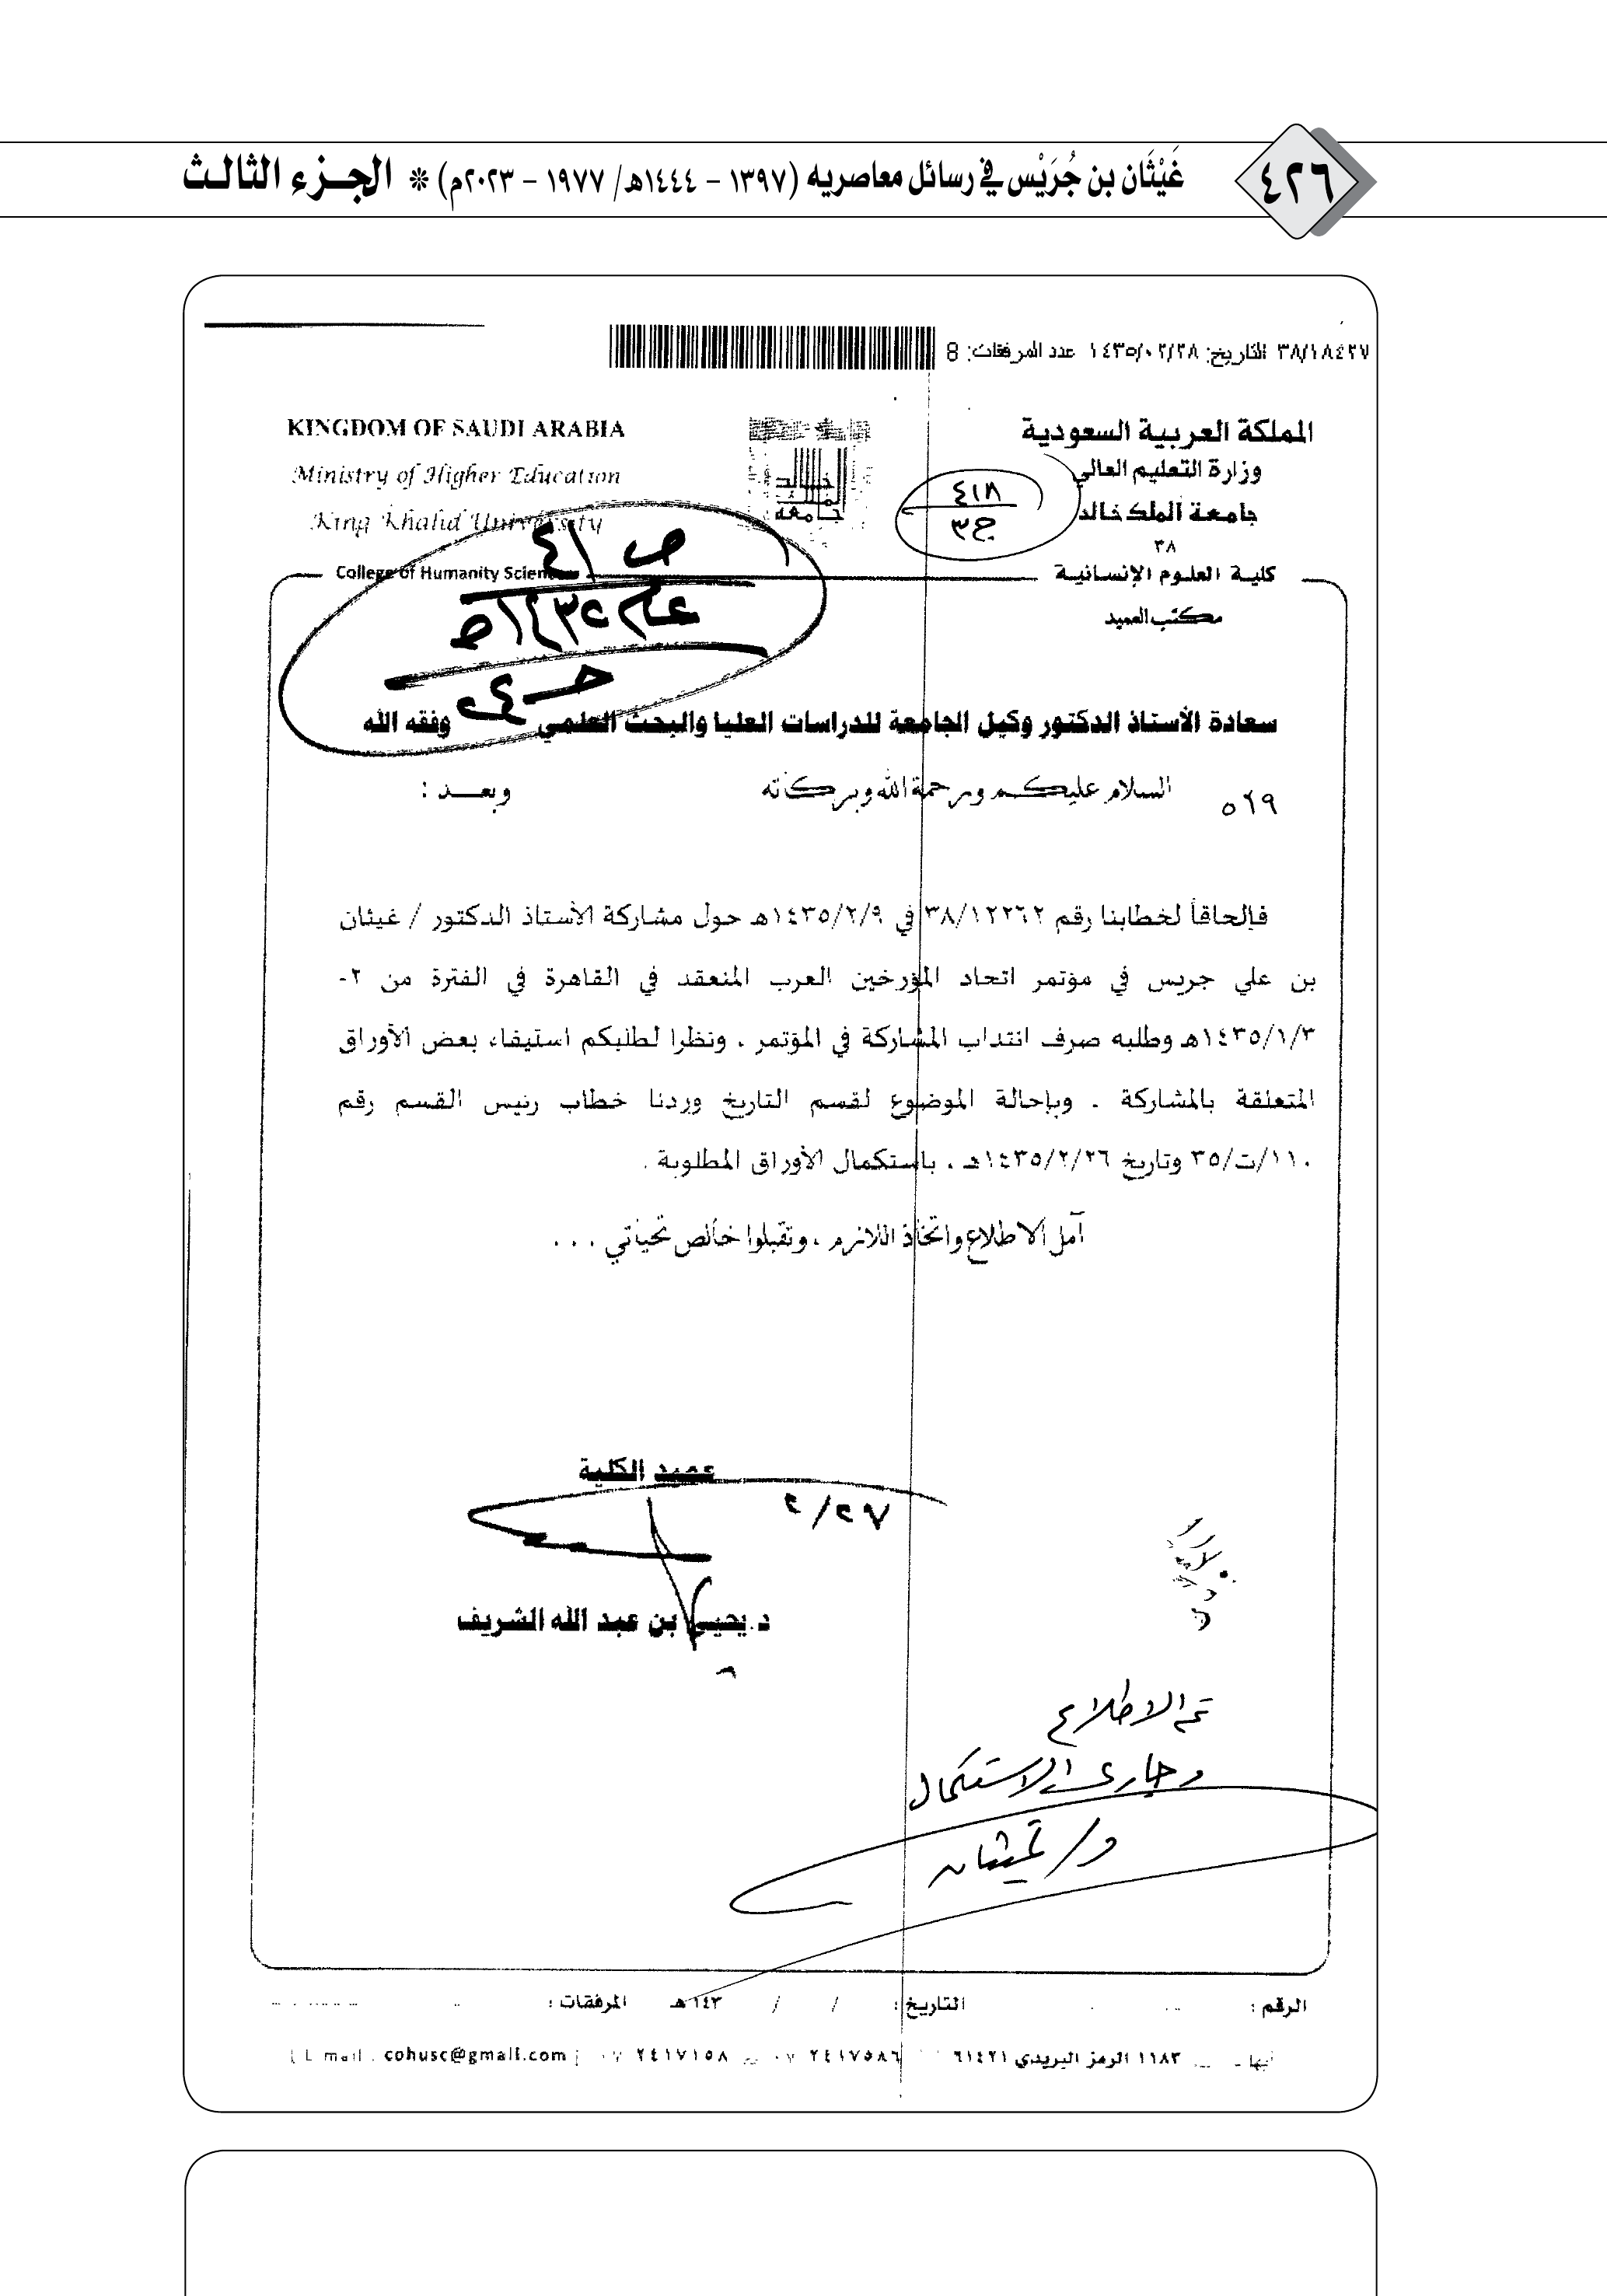 ٤٢٦
غَيْثَان بن جُرَيْس في رسائل معاصريه (١٣٩٧ – ١٤٤٤هـ/ ١٩٧٧ – ٢٠٢٣م) * الجـزء الثالـث
٣٨/١٨٤٢٧ التاريخ: ١٤٣٥/٠٢/٢٨ عدد المرفقات: 8
المملكة العربية السعودية
وزارة التعليم العالي
جامعة الملك خالد
٣٨
كلية العلوم الإنسانية
مكتب العميد
KINGDOM OF SAUDI ARABIA
Ministry of Higher Education
King Khalid University
College of Humanity Sciences
جامعة الملك خالد
٤١٨
ج٣
ص ٤١
سعادة الأستاذ الدكتور وكيل الجامعة للدراسات العليا والبحث العلمي وفقه الله
السلام عليكم ورحمة الله وبركاته وبعـــد :
٥٦٩
فإلحاقاً لخطابنا رقم ٣٨/١٢٢٦٢ في ١٤٣٥/٢/٩هـ حول مشاركة الأستاذ الدكتور / غيثان
بن علي جريس في مؤتمر اتحاد المؤرخين العرب المنعقد في القاهرة في الفترة من ٢-
١٤٣٥/١/٣هـ وطلبه صرف انتداب المشاركة في المؤتمر . ونظرا لطلبكم استيفاء بعض الأوراق
المتعلقة بالمشاركة . وبإحالة الموضوع لقسم التاريخ وردنا خطاب رئيس القسم رقم
١١٠/ت/٣٥ وتاريخ ١٤٣٥/٢/٢٦هـ . باستكمال الأوراق المطلوبة .
آمل الاطلاع واتخاذ اللازم ، وتقبلوا خالص تحياتي . . .
عميد الكلية
٢/٢٧
د.يحيى بن عبد الله الشريف
تم الاطلاع
وجاري الاستكمال
د/ غيثان
الرقم : التاريخ : / / ١٤٣هـ المرفقات :
أبها ١١٨٣ الرمز البريدي ٦١٤٢١ ٢٤١٧٥٨٦ ٠٧ ٢٤١٧١٥٨ ٠٧ mail . cohusc@gmail.com